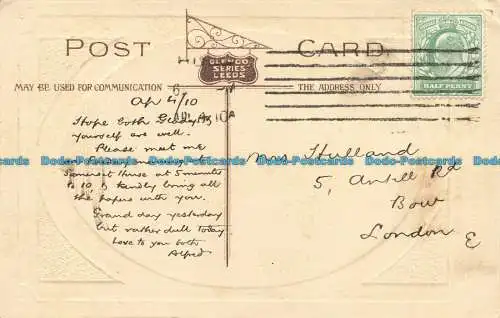 POST CARD
GLENCO
SERIES
LEEDS
MAY BE USED FOR COMMUNICATION
THE ADDRESS ONLY
HALF PENNY
Ap 4/10
Hope both &
yourself are well.
Please meet me
Somerset House at 5 minutes
to 10, & kindly bring all
the papers with you.
Grand day yesterday
but rather dull today
Love to you both
Alfred
Mrs Hulland
5, Antill Rd
Bow
London E
Dodo-Postcards Dodo-Postcards Dodo-Postcards Dodo-Postcards Dodo-Postcards